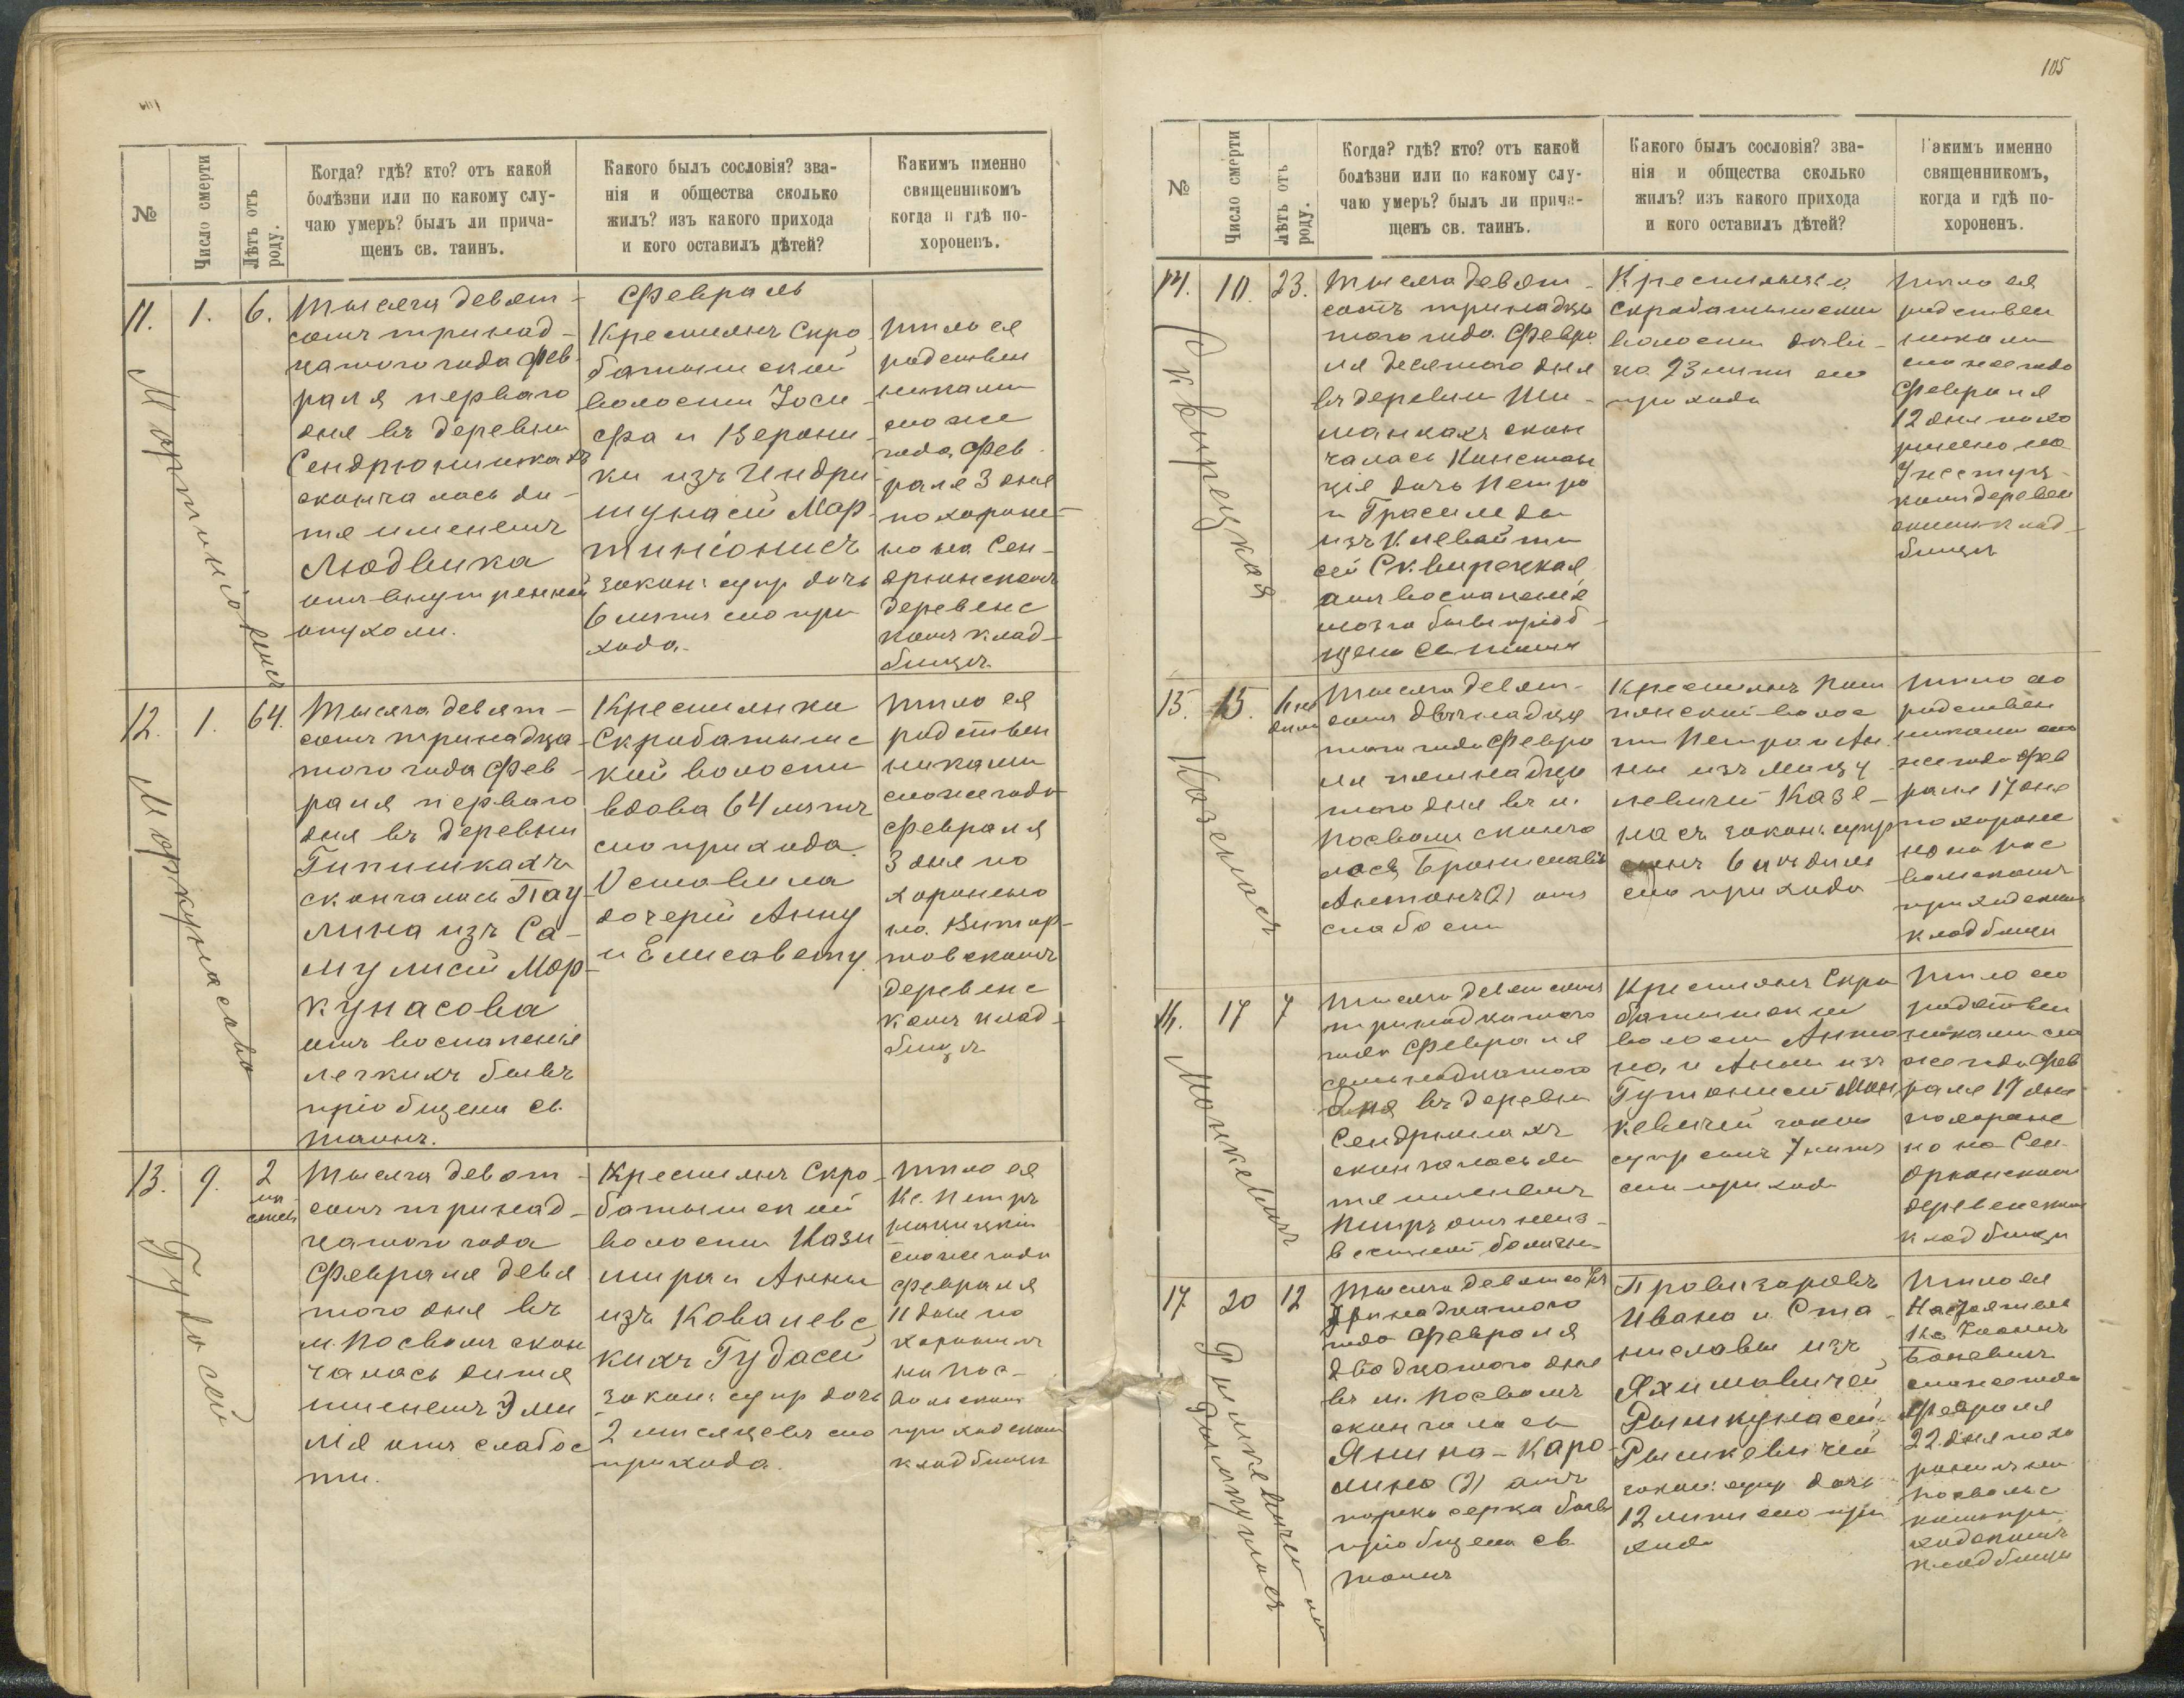 105
№
Число смерти
Лѣтъ отъ роду.
Когда? гдѣ? кто? отъ какой
болѣзни или по какому слу-
чаю умеръ? былъ ли прича-
щенъ св. таинъ.
Какого былъ сословія? зва-
нія и общества сколько
жилъ? изъ какого прихода
и кого оставилъ дѣтей?
Какимъ именно
священникомъ
когда и гдѣ по-
хороненъ.
11.
1.
6.
Мартиніонисъ
Тысяча девят-
сотъ тринад-
цатого года Фев-
раля перваго
дня въ деревни
Сендрюнишкахъ
скончалась ди-
тя именемъ
Людвика
отъ внутренной
опухоли.
Февраль
Крестьянъ Скро-
батышской
волости Іоси-
фа и Верони-
ки изъ Индри-
шунасей Мар-
тиніонисъ
закон: супр дочь
6 лѣтъ сего при
хода.
Тѣло ея
родствен
никами
сего же
года Фев
раля 3 дня
похороне-
но на Сен-
дрюнскомъ
деревенс
комъ клад-
бищѣ
12.
1.
64.
Маркунасова
Тысяча девят-
сотъ тринадца-
того года Фев-
раля перваго
дня въ деревни
Гипишкахъ
скончалась Пау-
лина изъ Са-
мулисей Мар-
кунасова
отъ воспаленія
легкихъ бывъ
пріобщена св.
таинъ.
Крестьянка
Скробатышс
кой волости
вдова 64 лѣтъ
сего прихода.
Оставила
дочерей Анну
и Елисавету.
Тѣло ея
родствен
никами
сего же года
Февраля
3 дня по
хоронено
на
товскомъ
деревенс
комъ клад-
бищѣ
13.
9.
2
мѣ
сяцевъ
Гудасей
Тысяча девят-
сотъ тринад-
цатого года
Февраля девя
того дня въ
м. Посволѣ скон
чалась дитя
именемъ Эми
лія отъ слабос
ти.
Крестьянъ Скро-
батышской
волости Кази
мира и Анны
изъ Ковалевс
кихъ Гудасей
закон: супр дочь
2 мѣсяцевъ сего
прихода.
Тѣло ея
Кс. Петръ
сего же года
Февраля
11 дня по
хоронилъ
на Пос-
вольскомъ
приходскомъ
кладбищѣ
№
Число смерти
Лѣтъ отъ роду.
Когда? гдѣ? кто? отъ какой
болѣзни или по какому слу-
чаю умеръ? былъ ли прича-
щенъ св. таинъ.
Какого былъ сословія? зва-
нія и общества сколько
жилъ? изъ какого прихода
и кого оставилъ дѣтей?
Какимъ именно
священникомъ,
когда и гдѣ по-
хороненъ.
14.
10.
23.
Сквирецкая
Тысяча девят-
сотъ тринадца
того года Февра
ля десятого дня
въ деревни Ти-
манкахъ скон
чалась Констан
ція дочь Петра
и Грасильды
изъ Клевайти
сей Сквирецкая
отъ воспаленія
мозга бывъ пріоб-
щена св таинъ
Крестьянка
Скробатышской
волости дѣви-
ца 23 лѣтъ сего
прихода
Тѣло ея
родствен
никами
сего же года
Февраля
12 дня похо
ронено на
комъ деревен
скомъ клад-
бищѣ
15.
15.
6 не
дѣль
Казенасъ
Тысяча девят-
сотъ двѣнадця
того года Февра
ля пятнадца
того дня въ м.
Посволѣ сконча
лось Брониславъ
Антонъ (2) отъ
слабости
Крестьянъ
волос
ти Петра и Ан
ны изъ Мицу
левичей Казе-
насъ закон: супр
сынъ 6 недѣль
сего прихода
Тѣло его
родствен
никами сего
же года Фев
раля 17 дня
похороне
но на Пос
вольскомъ
приходскомъ
кладбищѣ
16.
17
7
Монкевичъ
Тысяча девятсотъ
тринадцатого
года Февраля
семнадцатого
дня въ деревни
Сендрюнахъ
скончалось ди
тя именемъ
Петръ отъ неиз-
вестной болѣзни
Крестьянъ Скро
батышской
волости Анто
на и Анны изъ
Гутонисей Мон
кевичей закон
супр сынъ 7 лѣтъ
сего прихода
Тѣло его
родствен
никами сего
же года Фев
раля 19 дня
похороне
но на Сен-
дрюнскомъ
деревенскомъ
кладбищѣ
17
20
12
Рышкевичей
Тысяча девятсотъ
тринадцатого
года Февраля
двадцатого дня
въ м. Посволѣ
скончалась
Янина-Каро-
лина (2) отъ
порока серца бывъ
пріобщена св
таинъ
Провизоровъ
Ивана и Ста-
ниславы изъ
Яхимовичей
Рышкунасей-
Рышкевичей
закон: супр дочь
12 лѣтъ сего при
хода
Тѣло ея
Настоятель
Кс Іоаннъ
сего же года
Февраля
22 дня похо
ронилъ на
Посвольс
комъ при
ходскомъ
кладбищѣ